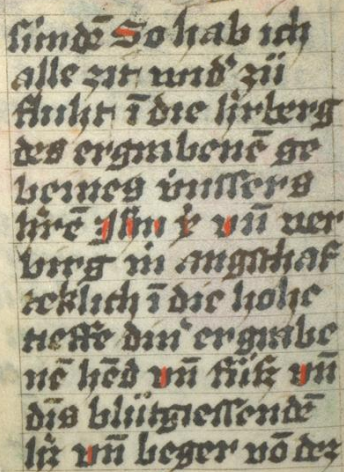 sünde᷉ So hab ich
alle zit und᷾ zů
fluht ī die h᷾rberg
des ergrabenē ge
beines vnssers
h᷾rē ihū x᷾ vn̄ ver
birg in angsthaf
teklich ī die hohe
tieffe din᷾ ergrabe
nē hēd vn̄ fůß vn̄
dis blůtgiessendē
h᷾z vn̄ beger vō der